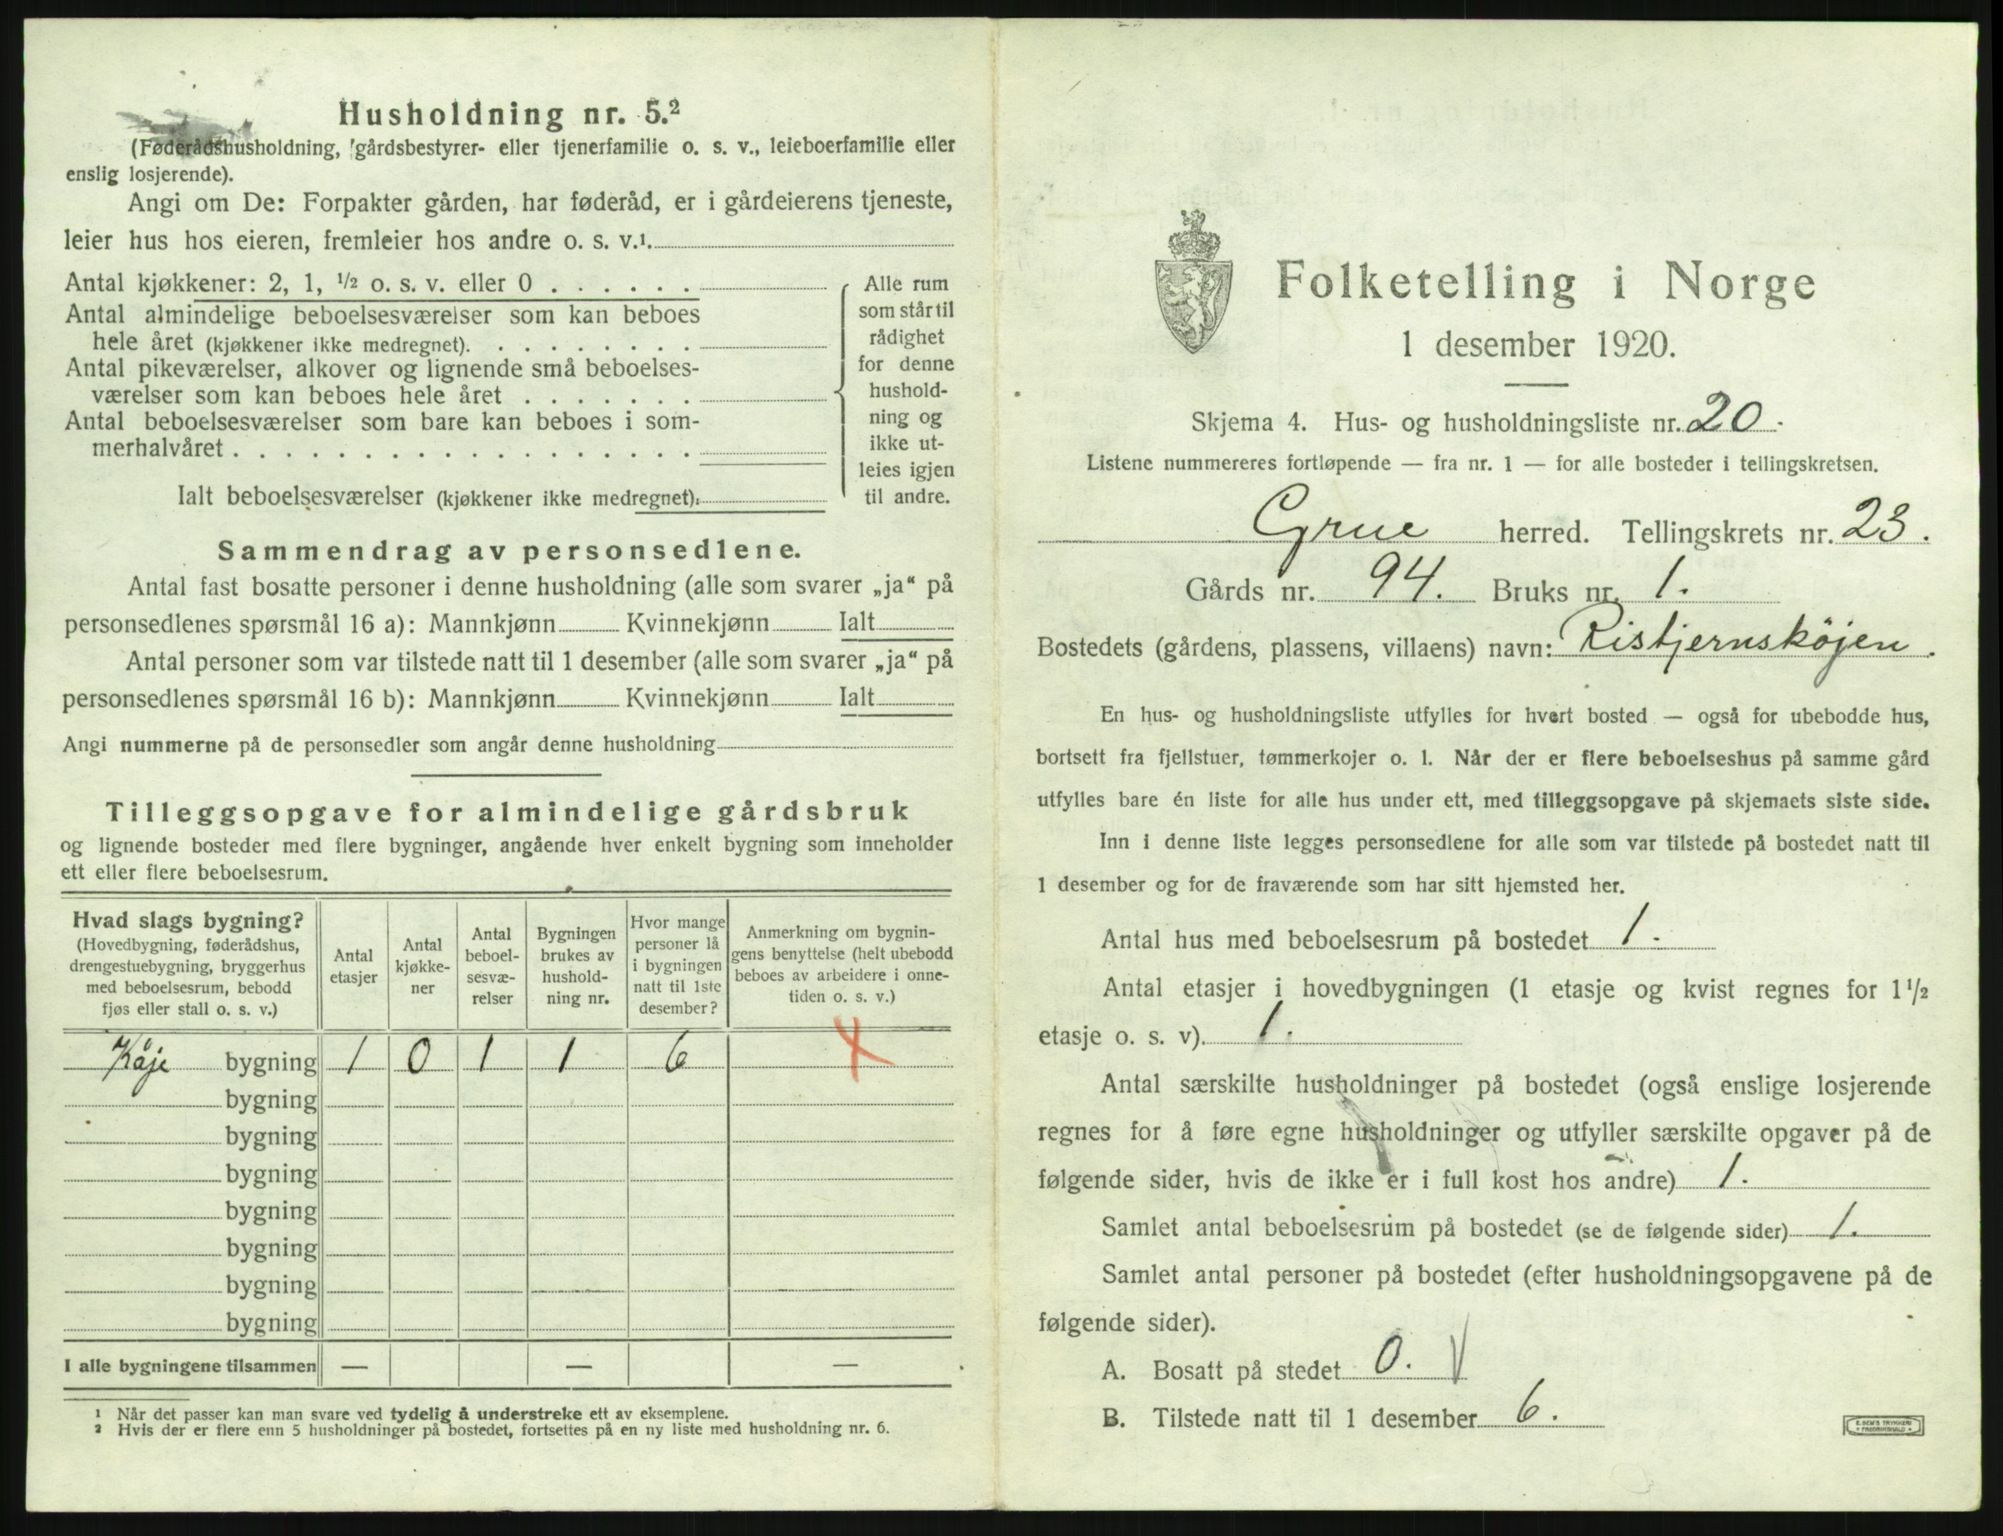 Husholdning nr. 5.²
(Føderådshusholdning, gårdsbestyrer- eller tjenerfamilie o. s. v., leieboerfamilie eller
enslig losjerende).
Angi om De: Forpakter gården, har føderåd, er i gårdeierens tjeneste,
leier hus hos eieren, fremleier hos andre o. s. v.¹
Antal kjøkkener: 2, 1, ½ o. s. v. eller 0 . . . . . .
Antal almindelige beboelsesværelser som kan beboes
hele året (kjøkkener ikke medregnet). . . . . . . . .
Antal pikeværelser, alkover og lignende små beboelses-
værelser som kan beboes hele året . . . . . . .
Antal beboelsesværelser som bare kan beboes i som-
merhalvåret . . . . . . . . . . . . . . . . . .
Ialt beboelsesværelser (kjøkkener ikke medregnet):
Alle rum
som står til
rådighet
for denne
hushold-
ning og
ikke ut-
leies igjen
til andre.
Sammendrag av personsedlene.
Antal fast bosatte personer i denne husholdning (alle som svarer „ja“ på
personsedlenes spørsmål 16 a): Mannkjønn Kvinnekjønn Ialt
Antal personer som var tilstede natt til 1 desember (alle som svarer „ja“ på
personsedlenes spørsmål 16 b): Mannkjønn Kvinnekjønn Ialt
Angi nummerne på de personsedler som angår denne husholdning
Tilleggsopgave for almindelige gårdsbruk
og lignende bosteder med flere bygninger, angående hver enkelt bygning som inneholder
ett eller flere beboelsesrum.
Hvad slags bygning?
(Hovedbygning, føderådshus,
drengestuebygning, bryggerhus
med beboelsesrum, bebodd
fjøs eller stall o. s. v.)
Antal
etasjer
Antal
kjøkke-
ner
Antal
beboel-
sesvæ-
relser
Bygningen
brukes av
hushold-
ning nr.
Hvor mange
personer lå
i bygningen
natt til 1ste
desember?
Anmerkning om bygnin-
gens benyttelse (helt ubebodd
beboes av arbeidere i onne-
tiden o. s. v.)
Kåje bygning 1 0 1 1 6 X
bygning
bygning
bygning
bygning
bygning
bygning
bygning
I alle bygningene tilsammen — — —
¹ Når det passer kan man svare ved tydelig å understreke ett av eksemplene.
² Hvis der er flere enn 5 husholdninger på bostedet, fortsettes på en ny liste med husholdning nr. 6.
Folketelling i Norge
1 desember 1920.
Skjema 4. Hus- og husholdningsliste nr. 20.
Listene nummereres fortløpende — fra nr. 1 — for alle bosteder i tellingskretsen.
Grue herred. Tellingskrets nr. 23.
Gårds nr. 94. Bruks nr. 1.
Bostedets (gårdens, plassens, villaens) navn: Ristjernskøjen.
En hus- og husholdningsliste utfylles for hvert bosted — også for ubebodde hus,
bortsett fra fjellstuer, tømmerkojer o. l. Når der er flere beboelseshus på samme gård
utfylles bare én liste for alle hus under ett, med tilleggsopgave på skjemaets siste side.
Inn i denne liste legges personsedlene for alle som var tilstede på bostedet natt til
1 desember og for de fraværende som har sitt hjemsted her.
Antal hus med beboelsesrum på bostedet 1.
Antal etasjer i hovedbygningen (1 etasje og kvist regnes for 1½
etasje o. s. v). 1.
Antal særskilte husholdninger på bostedet (også enslige losjerende
regnes for å føre egne husholdninger og utfyller særskilte opgaver på de
følgende sider, hvis de ikke er i full kost hos andre) 1.
Samlet antal beboelsesrum på bostedet (se de følgende sider) 1.
Samlet antal personer på bostedet (efter husholdningsopgavene på de
følgende sider).
A. Bosatt på stedet 0. V
B. Tilstede natt til 1 desember 6.
E. SEM'S TRYKKERI
FREDRIKSHALD